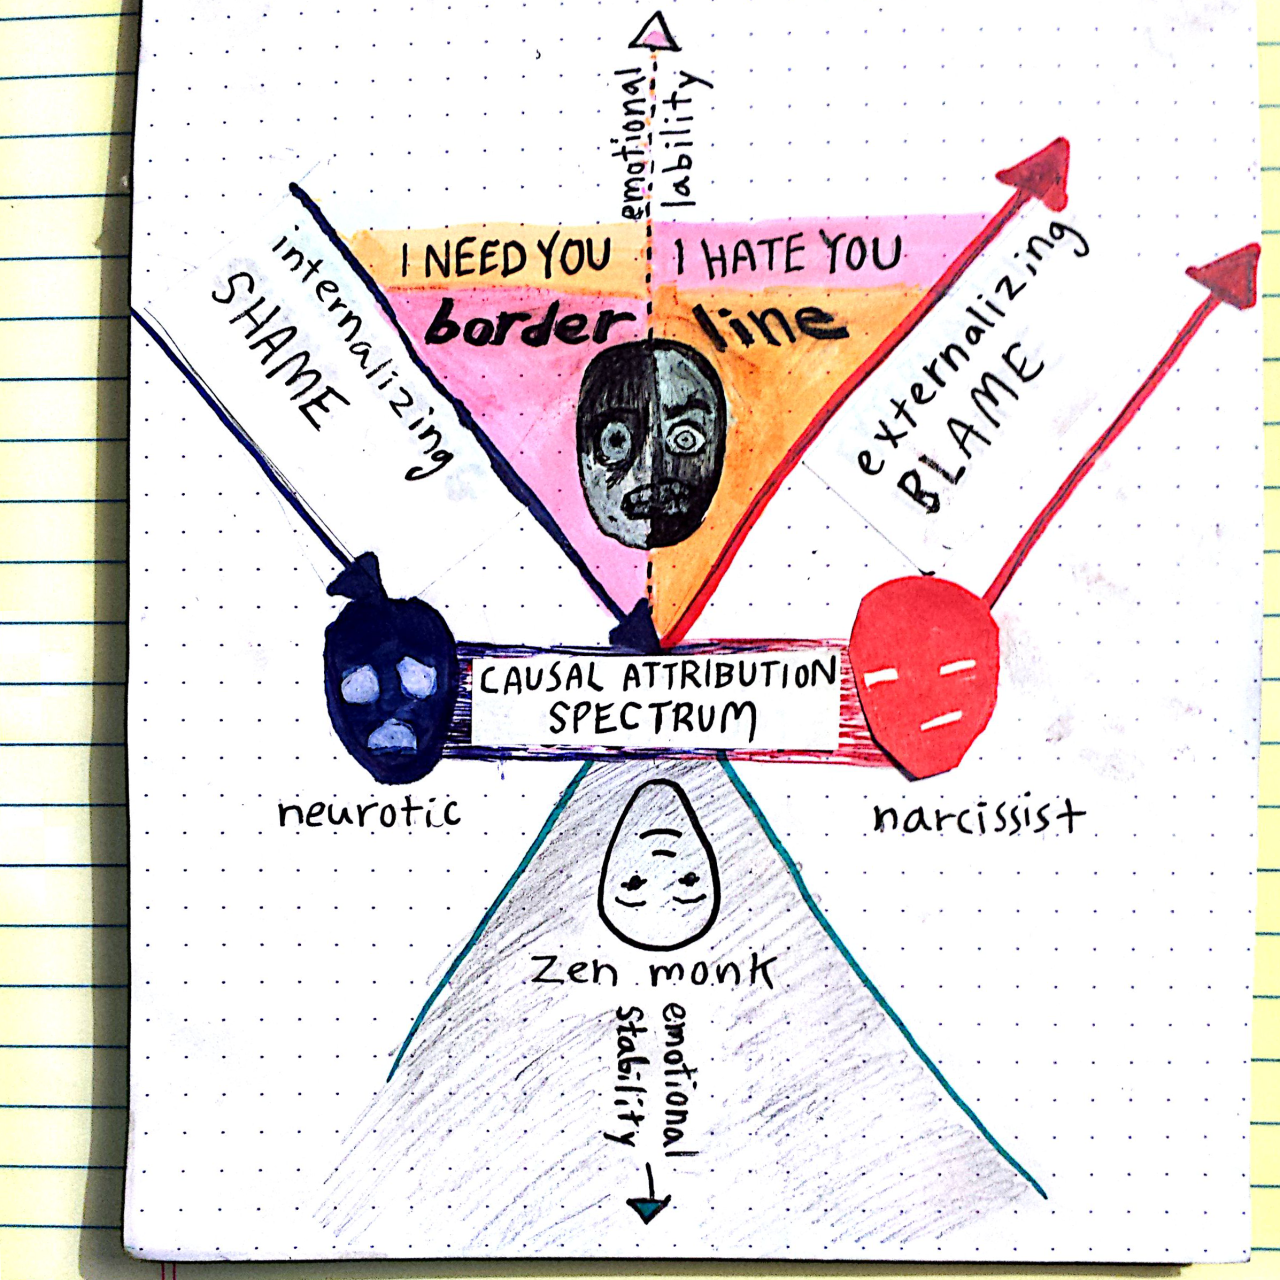 emotional
lability
I NEED YOU
I HATE YOU
border line
internalizing
SHAME
externalizing
BLAME
CAUSAL ATTRIBUTION
SPECTRUM
neurotic
narcissist
zen monk
emotional
stability